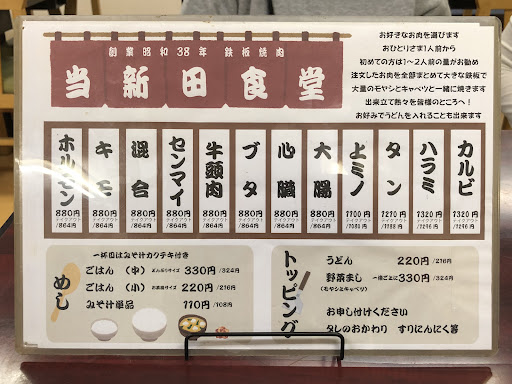 創業昭和38年 鉄板焼肉
当新田食堂
お好きなお肉を選びます
おひとりさま1人前から
初めての方は1〜2人前の量がお勧め
注文したお肉を全部まとめて大きな鉄板で
大量のモヤシとキャベツと一緒に焼きます
出来立て熱々を皆様のところへ！
お好みでうどんを入れることも出来ます
カルビ 1320円 テイクアウト/1296円
ハラミ 1320円 テイクアウト/1296円
タン 1270円 テイクアウト
上ミノ 1100円 テイクアウト
大腸 880円 テイクアウト/864円
心臓 880円 テイクアウト/864円
ブタ 880円 テイクアウト/864円
牛頭肉 880円 テイクアウト/864円
センマイ 880円 テイクアウト/864円
混合 880円 テイクアウト/864円
キモ 880円 テイクアウト/864円
ホルモン 880円 テイクアウト/864円
めし
一杯目はみそ汁カクテキ付き
ごはん（中） どんぶりサイズ 330円/324円
ごはん（小） お茶碗サイズ 220円/216円
みそ汁単品 110円/108円
トッピング
うどん 220円/216円
野菜まし 一種ごとに 330円/324円
（モヤシとキャベツ）
お申し付けください
タレのおかわり すりにんにく等